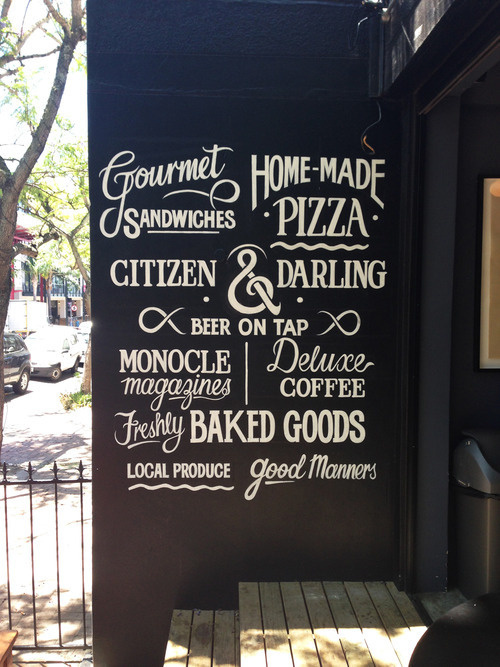 Gourmet SANDWICHES
HOME-MADE PIZZA
CITIZEN & DARLING
BEER ON TAP
MONOCLE magazines
Deluxe COFFEE
Freshly BAKED GOODS
LOCAL PRODUCE good Manners